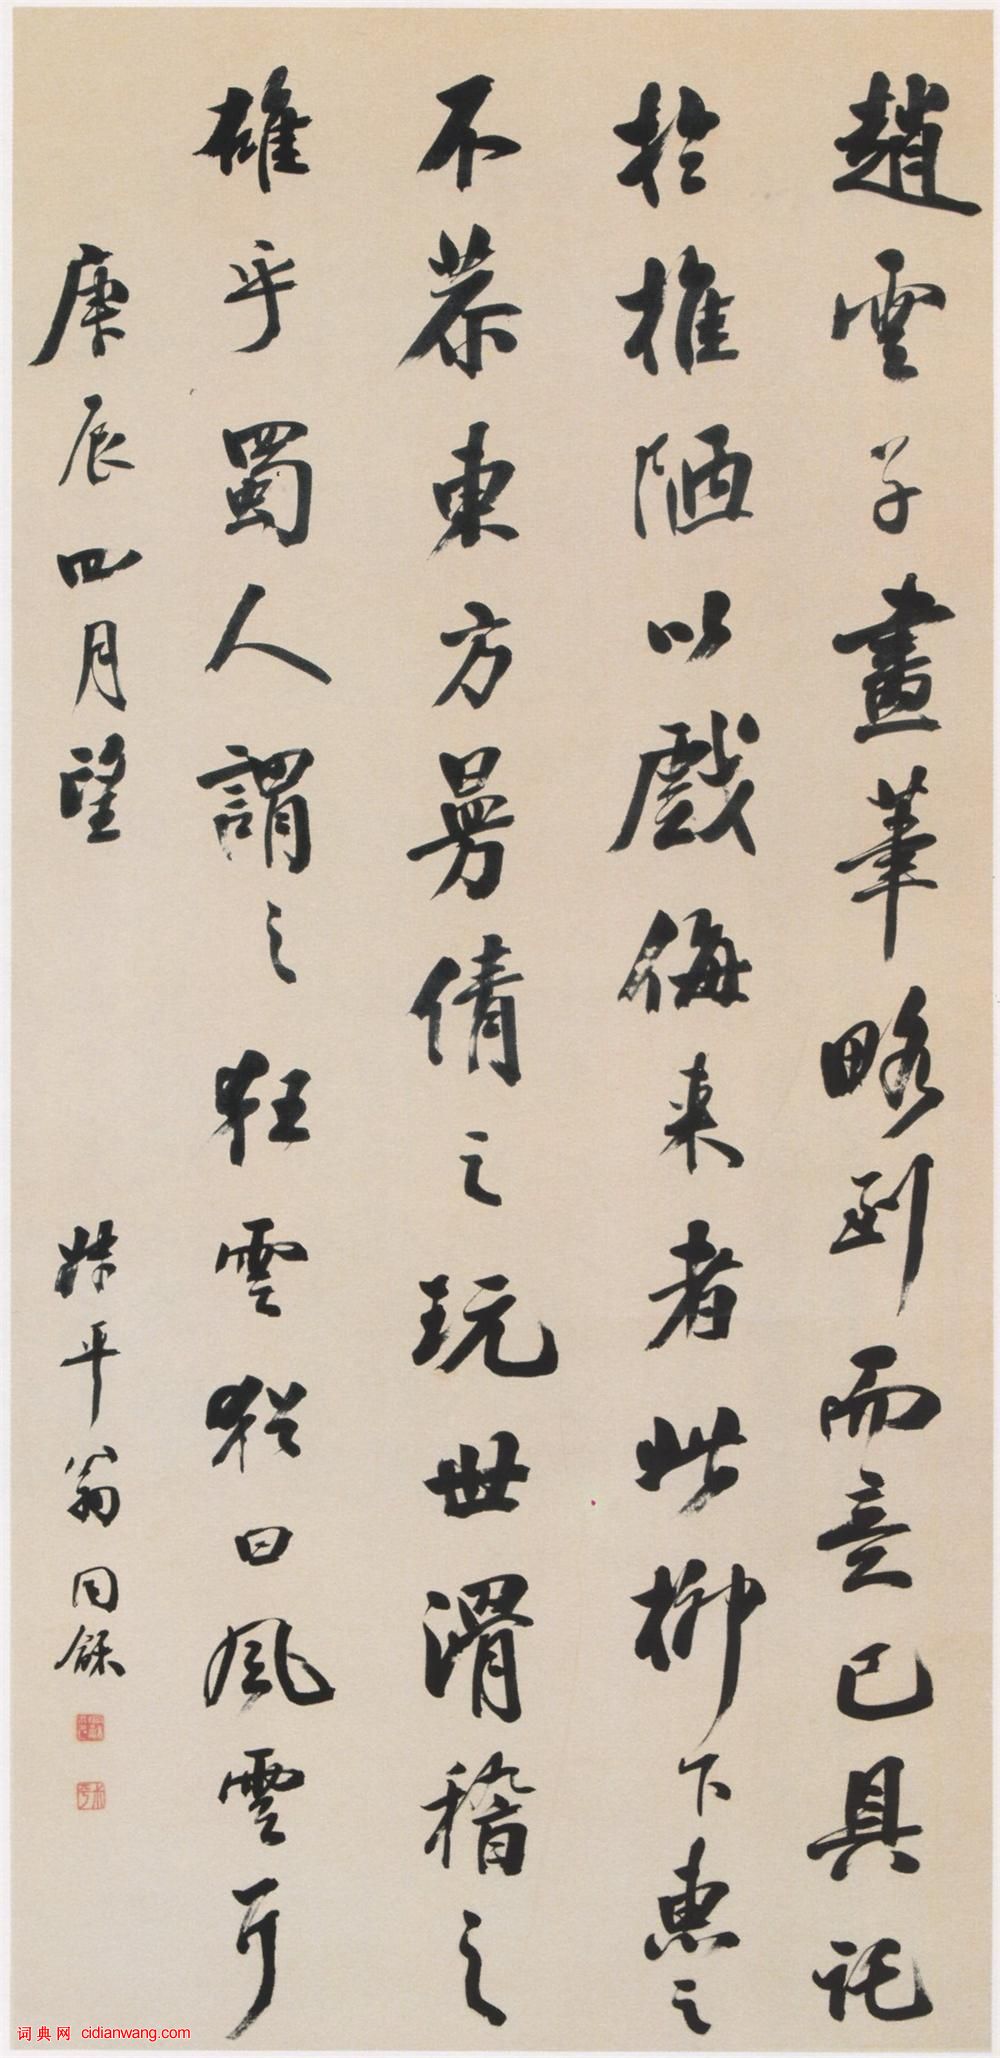 趙雲子畫筆略到而意已具託
於椎陋以戲侮来者此柳下惠之
不恭東方曼倩之玩世滑稽之
雄乎蜀人謂之狂雲猶曰風雲耳
庚辰四月望
叔平翁同龢
词典网 cidianwang.com